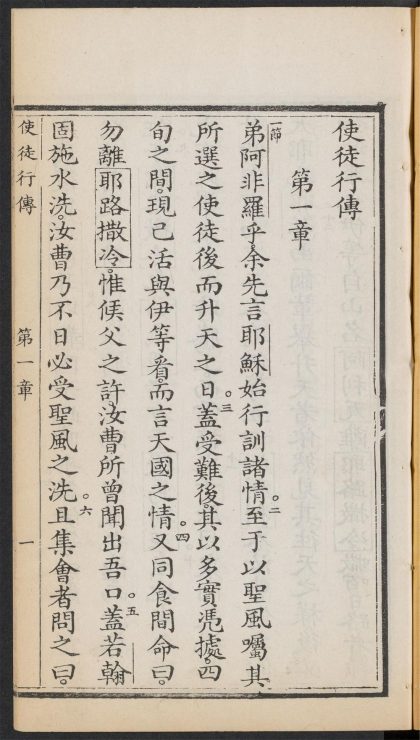 使徒行傳
第一章
一節
弟阿非羅乎余先言耶穌始行訓諸情。二至于以聖風囑其
所選之使徒後而升天之日。三蓋受難後其以多實憑據四
旬之間現已活與伊等看而言天國之情。四又同食間命曰。
勿離耶路撒冷惟俟父之許汝曹所曾聞出吾口。五蓋若翰
固施水洗。汝曹乃不日必受聖風之洗。六且集會者問之曰。
使徒行傳 第一章 一